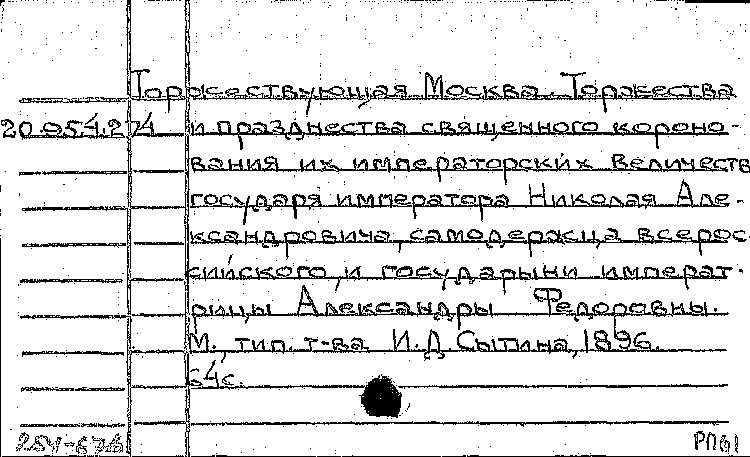 Торжествующая Москва. Торжества
20.954.274 и празднества священного короно-
вания их императорских величеств
государя императора Николая Але-
ксандровича, самодержца всерос-
сийского, и государыни императ-
рицы Александры Федоровны.
М., тип. т-ва И.Д. Сытина, 1896.
64с.
РП61